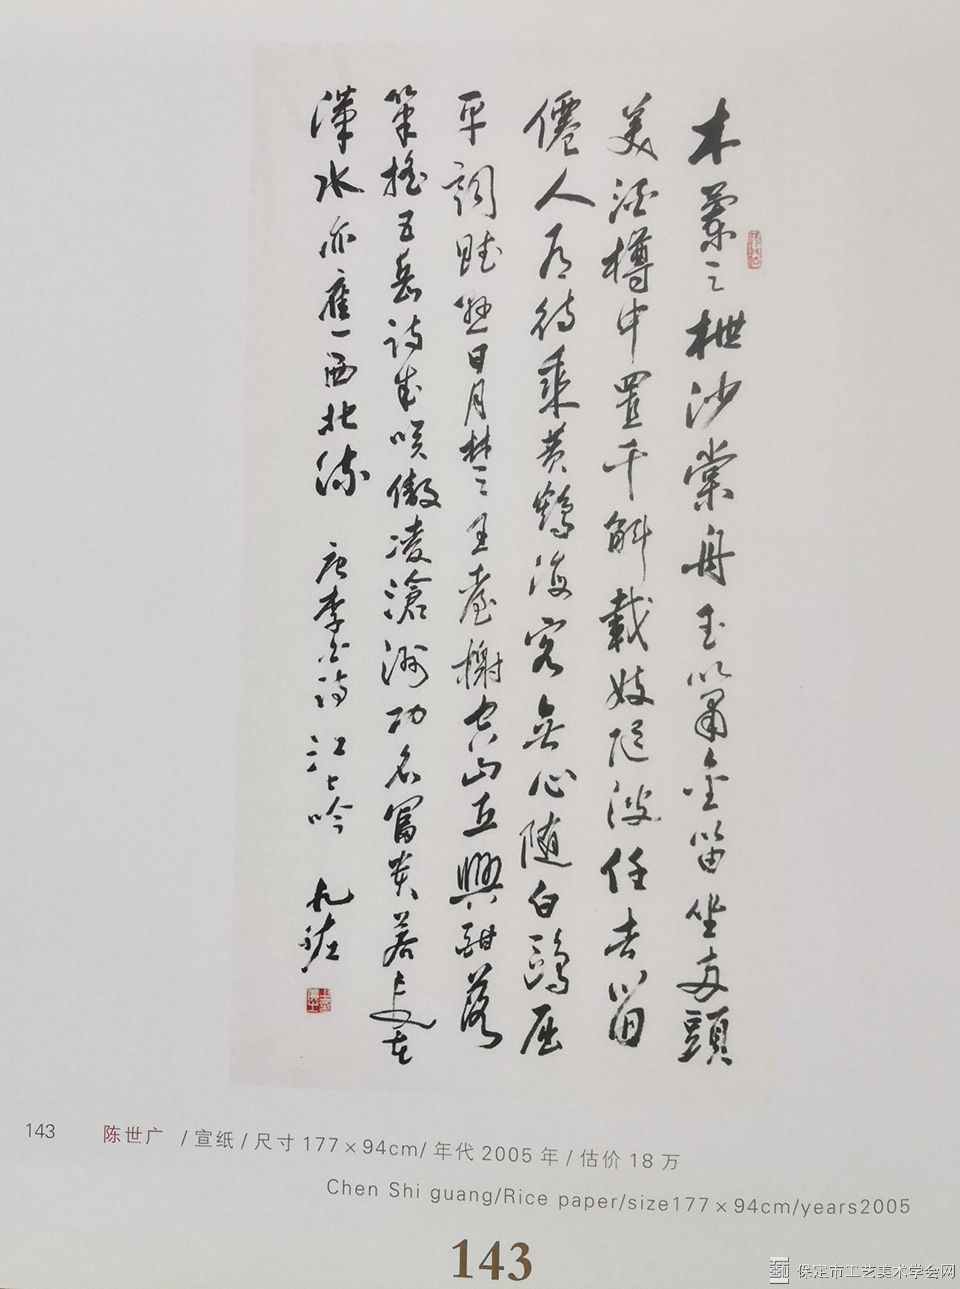 木蘭之枻沙棠舟玉簫金笛坐兩頭
美酒樽中置千斛載妓隨波任去留
僊人有待乘黃鶴海客無心随白鷗屈
平詞賦懸日月楚王臺榭空山丘興酣落
筆搖五岳詩成咲傲凌滄洲功名富貴若長在
漢水亦應西北流 唐李白詩江上吟
143 陈世广 /宣纸/尺寸177×94cm/年代2005年/估价18万
Chen Shi guang/Rice paper/size177×94cm/years2005
143
保定市工艺美术学会网